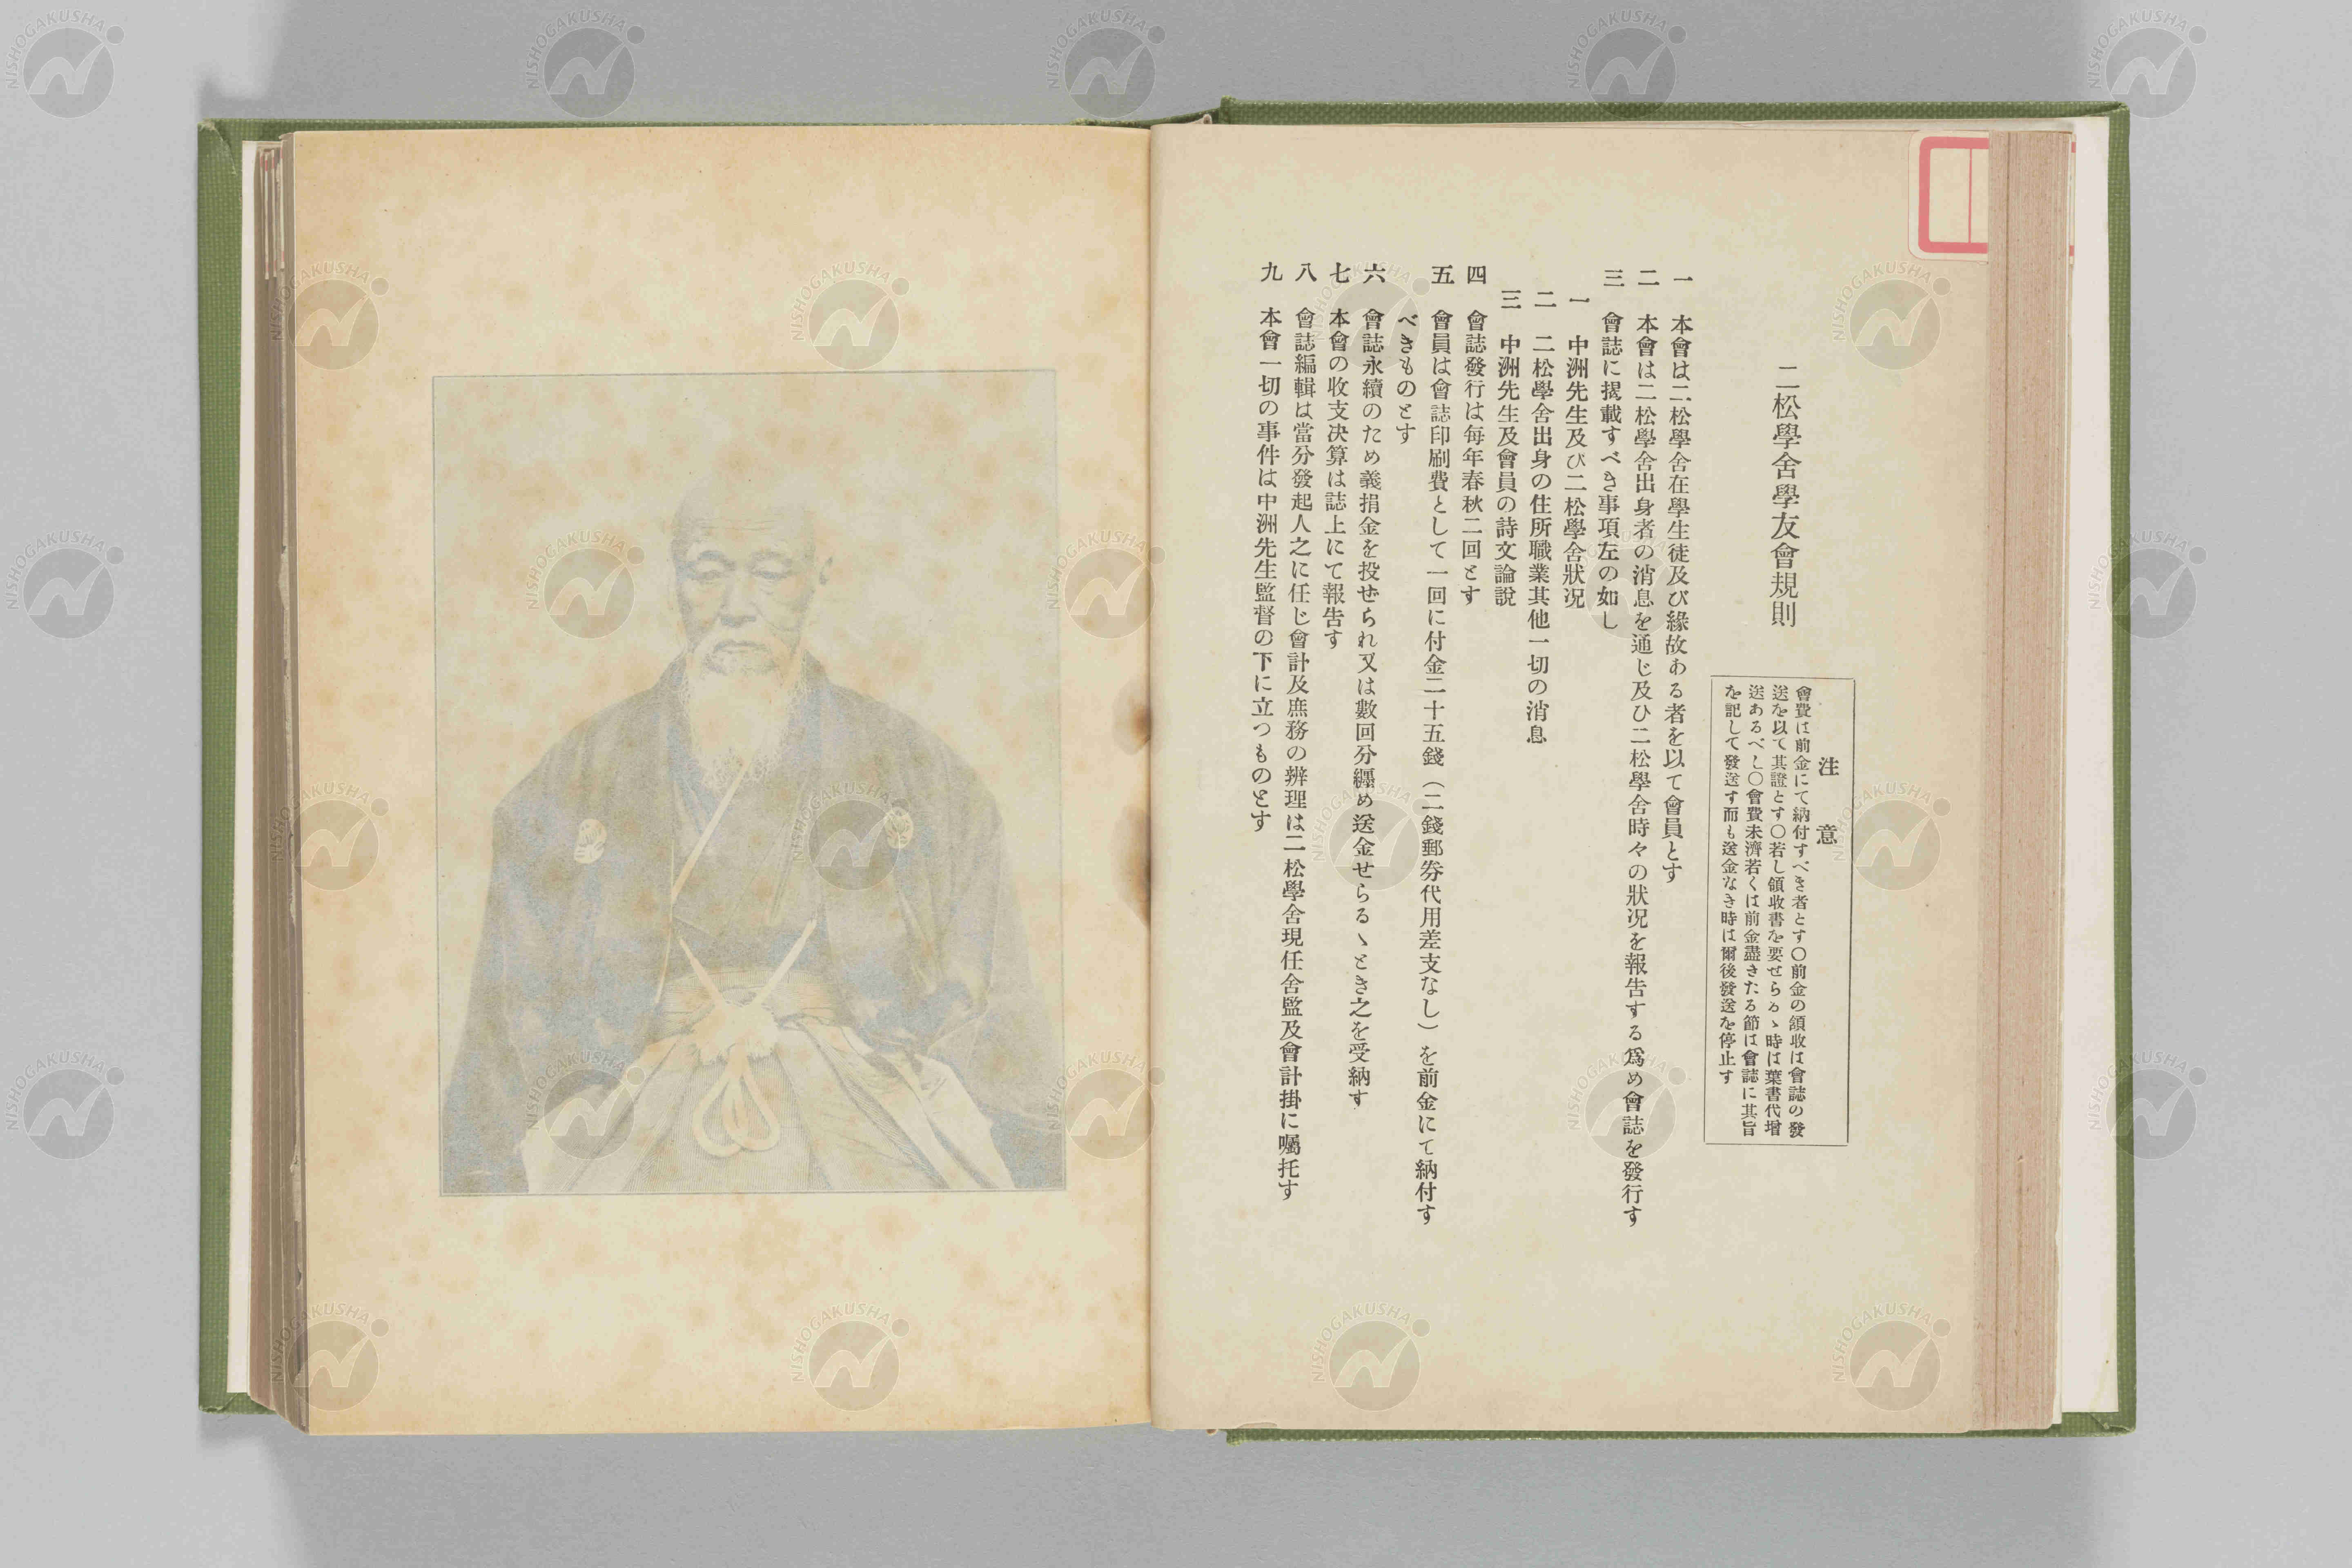 二松學舍學友會規則
注意
會費は前金にて納付すべき者とす〇前金の領收は會誌の發
送を以て其證とす〇若し領收書を要せらるゝ時は葉書代增
送あるべし〇會費未濟若くは前金盡きたる節は會誌に其旨
を記して發送す而も送金なき時は爾後發送を停止す
一 本會は二松學舍在學生徒及び緣故ある者を以て會員とす
二 本會は二松學舍出身者の消息を通じ及ひ二松學舍時々の狀況を報告する爲め會誌を發行す
三 會誌に揭載すべき事項左の如し
一 中洲先生及び二松學舍狀況
二 二松學舍出身の住所職業其他一切の消息
三 中洲先生及會員の詩文論說
四 會誌發行は每年春秋二回とす
五 會員は會誌印刷費として一回に付金二十五錢(二錢郵券代用差支なし)を前金にて納付す
べきものとす
六 會誌永續のため義捐金を投ぜられ又は數回分纒め送金せらるゝとき之を受納す
七 本會の收支決算は誌上にて報告す
八 會誌編輯は當分發起人之に任じ會計及庶務の辨理は二松學舍現任舍監及會計掛に囑托す
九 本會一切の事件は中洲先生監督の下に立つものとす
NISHOGAKUSHA